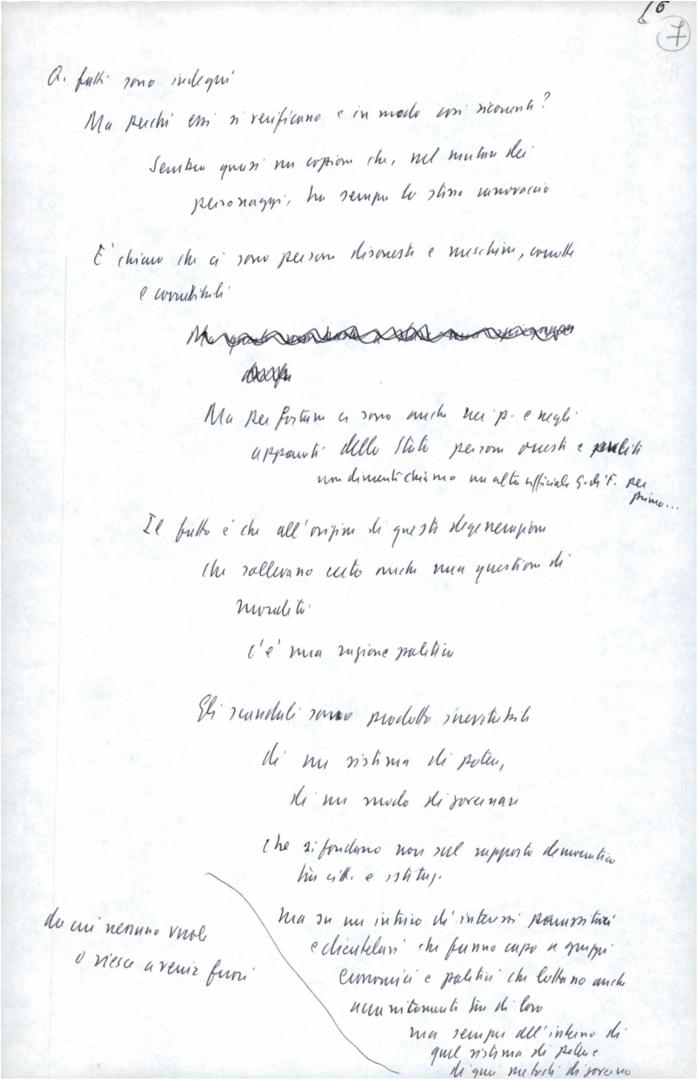 16
7
Q. fatti sono indegni
Ma perché essi si verificano e in modo così ricorrenti?
Sembra quasi un copione che, nel mutar dei
personaggi, ha sempre lo stesso canovaccio
E' chiaro che ci sono persone disoneste e meschine, corrotte
e corruttibili
Ma
Ma per fortuna ci sono anche nei p. e negli
apparati dello Stato persone oneste e pulite
non dimentichiamo un alto ufficiale G. di F. per
primo...
Il fatto è che all'origine di queste degenerazioni
che sollevano certo anche una questione di
moralità
c'è una ragione politica
Gli scandali sono prodotto inevitabile
di un sistema di potere,
di un modo di governare
che si fondano non sul rapporto democratico
tra citt. e istituz.
ma su un intrico di interessi parassitari
e clientelari che fanno capo a gruppi
economici e politici che lottano anche
accanitamente tra di loro
ma sempre all'interno di
quel sistema di potere
di quei metodi di governo
da cui nessuno vuole
o riesce a venir fuori